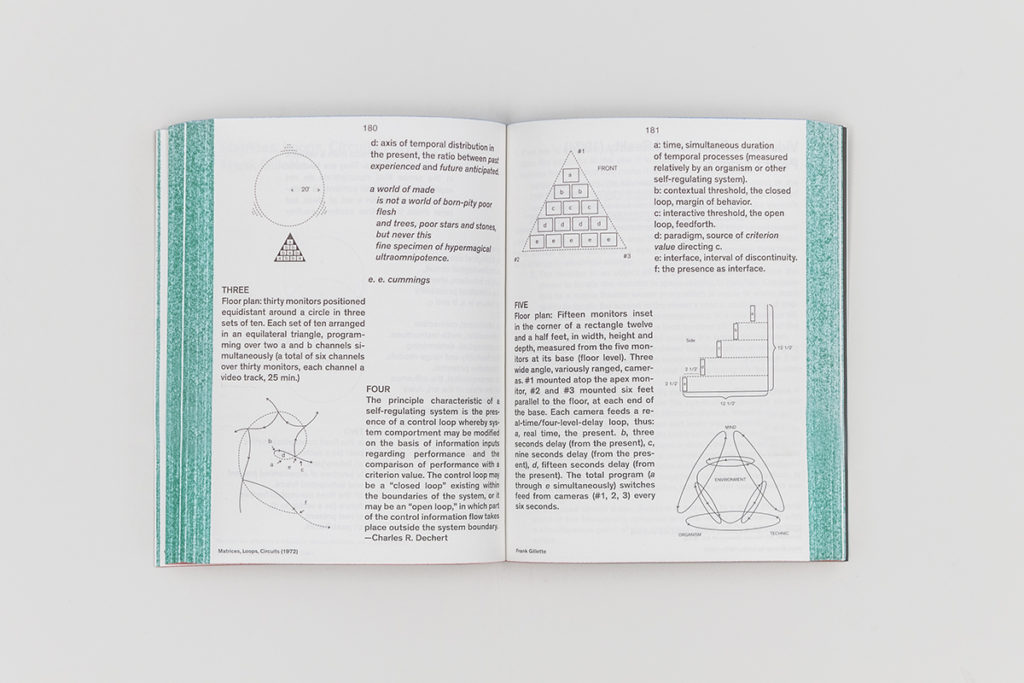 180
20'
THREE
Floor plan: thirty monitors positioned
equidistant around a circle in three
sets of ten. Each set of ten arranged
in an equilateral triangle, program-
ming over two a and b channels si-
multaneously (a total of six channels
over thirty monitors, each channel a
video track, 25 min.)
b
d
a
e
c
f
Matrices, Loops, Circuits (1972)
d: axis of temporal distribution in
the present, the ratio between past
experienced and future anticipated.
a world of made
is not a world of born-pity poor
flesh
and trees, poor stars and stones,
but never this
fine specimen of hypermagical
ultraomnipotence.
e. e. cummings
FOUR
The principle characteristic of a
self-regulating system is the pres-
ence of a control loop whereby sys-
tem comportment may be modified
on the basis of information inputs
regarding performance and the
comparison of performance with a
criterion value. The control loop may
be a “closed loop” existing within
the boundaries of the system, or it
may be an “open loop,” in which part
of the control information flow takes
place outside the system boundary.
—Charles R. Dechert
181
#1
FRONT
a
b b
c c c
d d d d
e e e e e
#2
#3
FIVE
Floor plan: Fifteen monitors inset
in the corner of a rectangle twelve
and a half feet, in width, height and
depth, measured from the five mon-
itors at its base (floor level). Three
wide angle, variously ranged, camer-
as. #1 mounted atop the apex mon-
itor, #2 and #3 mounted six feet
parallel to the floor, at each end of
the base. Each camera feeds a re-
al-time/four-level-delay loop, thus:
a, real time, the present. b, three
seconds delay (from the present), c,
nine seconds delay (from the pres-
ent), d, fifteen seconds delay (from
the present). The total program (a
through e simultaneously) switches
feed from cameras (#1, 2, 3) every
six seconds.
Frank Gillette
a: time, simultaneous duration
of temporal processes (measured
relatively by an organism or other
self-regulating system).
b: contextual threshold, the closed
loop, margin of behavior.
c: interactive threshold, the open
loop, feedforth.
d: paradigm, source of criterion
value directing c.
e: interface, interval of discontinuity.
f: the presence as interface.
Side
12 1/2'
2 1/2'
2 1/2'
12 1/2'
MIND
ENVIRONMENT
ORGANISM
TECHNIC